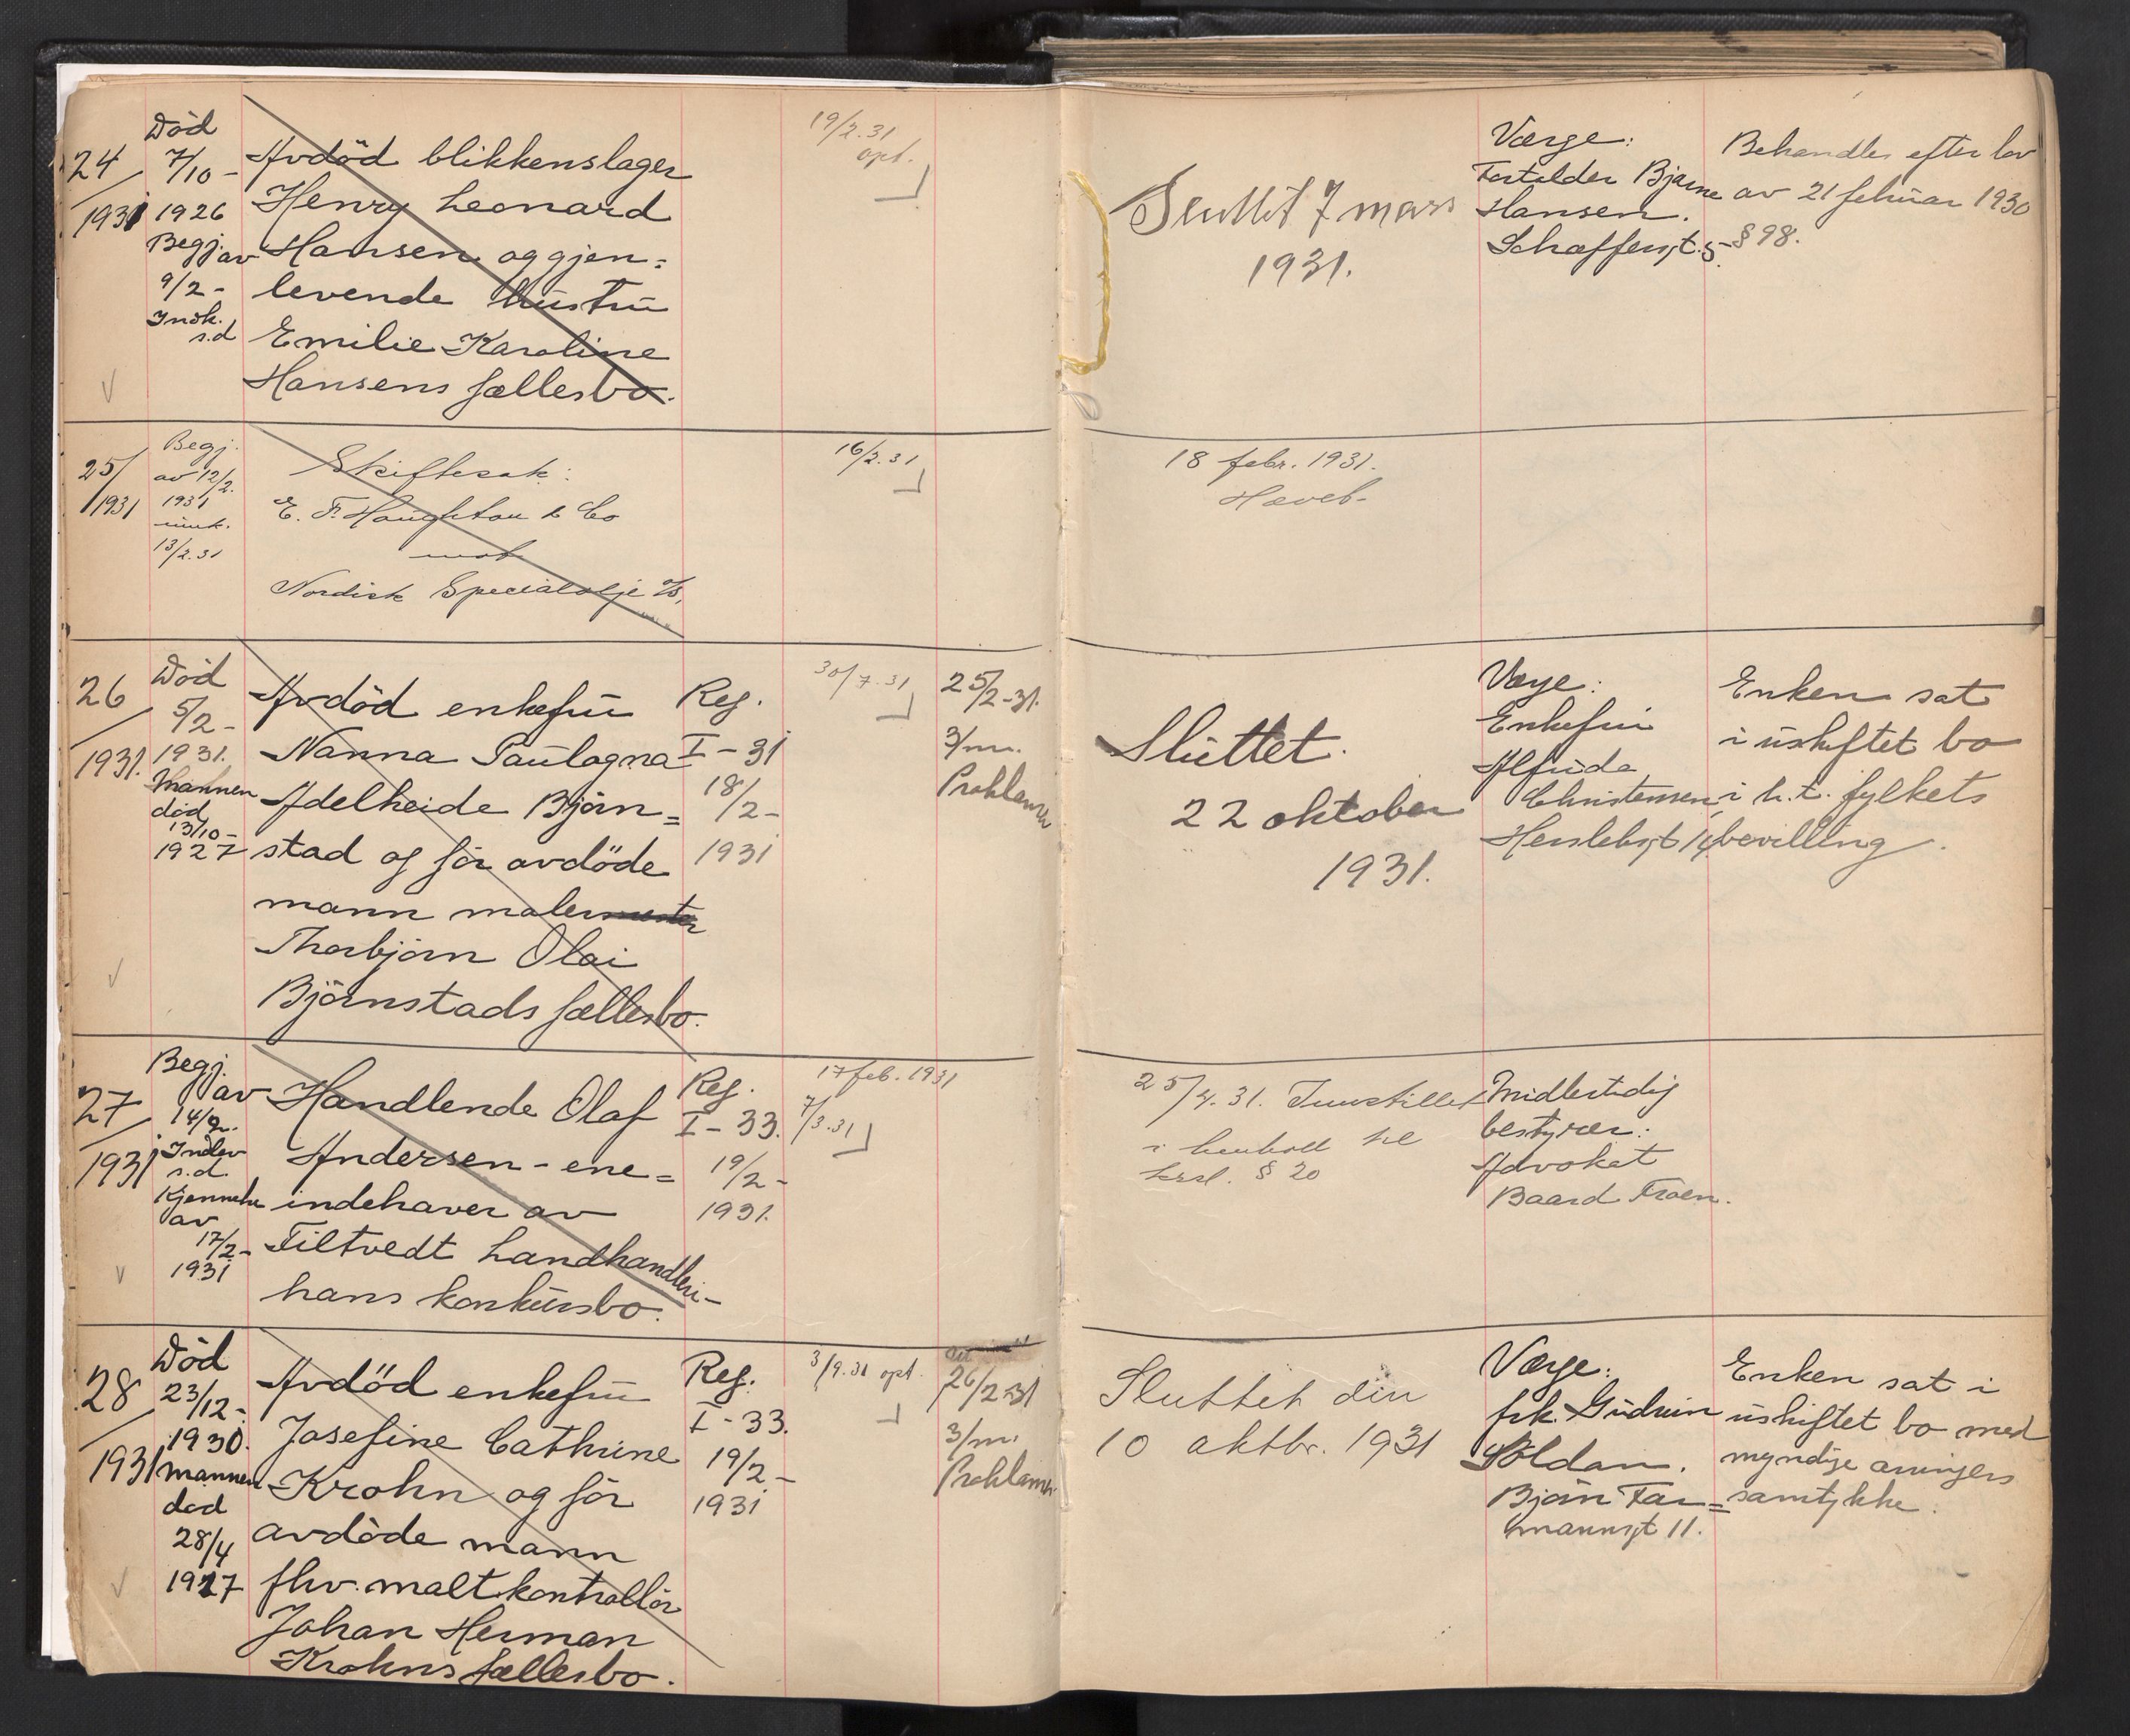 24/1931
Död
7/10-
1926
Begj. av
9/2-
Indk.
s.d
Avdöd blikkenslager
Henry Leonard
Hansen og gjen=
levende hustru
Emilie Karoline
Hansens fællesbo.
19/2.31
opt.
Sluttet 7 mars
1931.
Værge:
Hansen.
Schæffersgt. 5.
Behandles efter lov
av 21 februar 1930
§ 98.
25/1931
Begj.
av 12/2.
1931
innk.
13/2.31
Skiftesak:
E. F. Houghton & Co
mot
Nordisk Specialolje A/S,
16/2.31
18 febr. 1931.
Hævet.
26/1931.
Död
5/2-
1931.
Mannen
död
13/10-
1927
Avdöd enkefru
Nanna Paulagna
Adelheide Björn=
stad og för avdöde
mann malermester
Thorbjörn Olai
Björnstads fællesbo.
Reg.
I-31
18/2-
1931
30/7.31
25/2-31.
3/m.
Proklama
Sluttet
22 oktober
1931.
Værge:
Enkefru
Alfrida
Christensen,
Herslebsgt 14
Enken sat
i uskiftet bo
i h.t. fylkets
bevilling.
27/1931
Begj.
av
14/2.
Indlev
s.d.
Kjennelse
av
17/2-
1931
Handlende Olaf
Andersen - ene=
indehaver av
Filtvedt Landhandleri-
hans konkursbo.
Reg.
I-33.
19/2-
1931.
17 feb. 1931
7/3.31
25/4.31. Innstillet
i henhold til
kksl. § 20
Midlertidig
bestyrer:
Advokat
Baard Froen.
28/1931
Död
23/12-
1930.
Mannen
död
28/4
1927
Avdöd enkefru
Josefine Cathrine
Krohn og för
avdöde mann
fhv. maltkontrollör
Johan Herman
Krohns fællesbo.
Reg.
I-33.
19/2-
1931
3/9.31 opt.
26/2-31
3/m.
Proklama
Sluttet den
10 oktbr. 1931
Værge:
frk. Gudrun
Soldan.
Björn Far=
mannsgt 11.
Enken sat i
uskiftet bo med
myndige arvingers
samtykke.